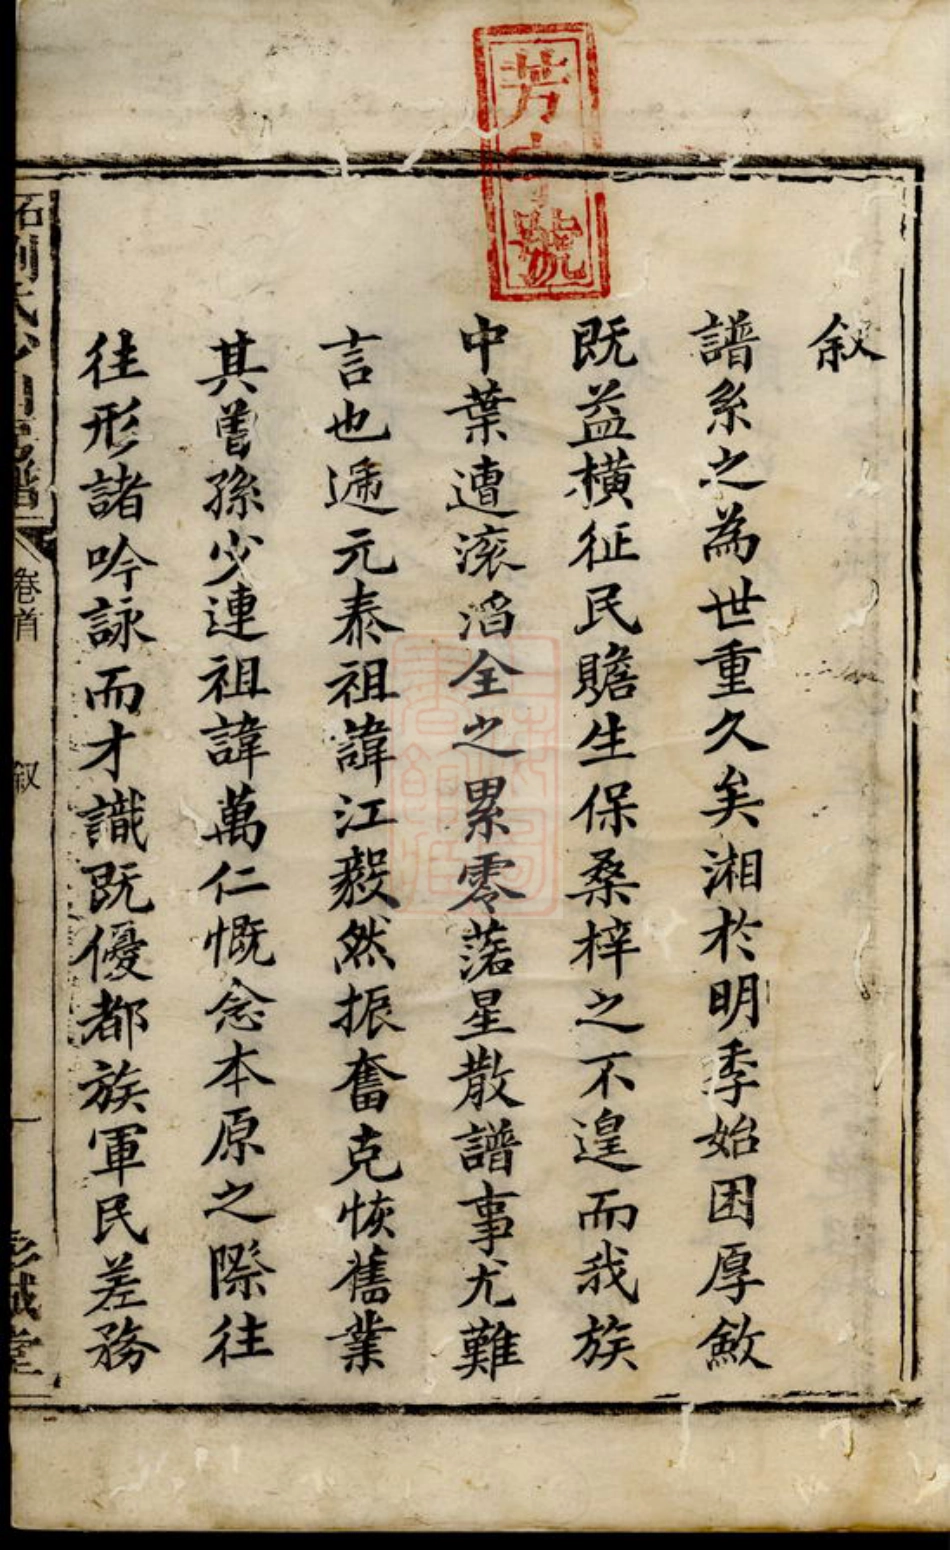 叙
譜系之為世重久矣湘於明季始困厚斂
既益橫征民贍生保桑梓之不遑而我族
中葉遭滚滔全之累零落星散譜事尤難
言也遞元泰祖諱江毅然振奮克恢舊業
其曾孫少連祖諱萬仁慨念本原之際往
往形諸吟詠而才識既優都族軍民差務
卷首
叙
一
芳
號